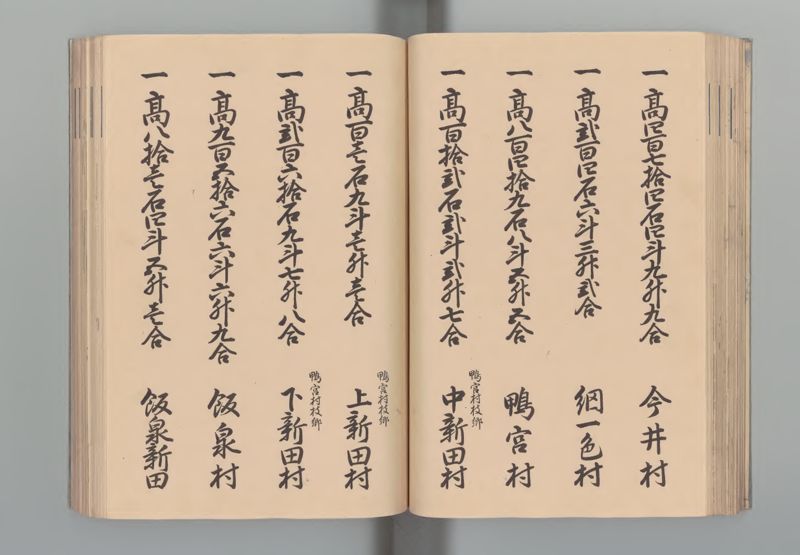 一 髙四百七拾四石四斗九舛九合 今井村
一 髙弐百四石六斗三舛弐合 網一色村
一 髙八百四拾九石八斗五舛五合 鴨宮村
鴨宮村枝郷
一 髙百拾弐石弐斗弐舛七合 中新田村
鴨宮村枝郷
一 髙百壱石九斗壱舛壱合 上新田村
鴨宮村枝郷
一 髙弐百六拾石九斗七舛八合 下新田村
一 髙九百五拾六石六斗六舛九合 飯泉村
一 髙八拾壱石四斗五舛壱合 飯泉新田